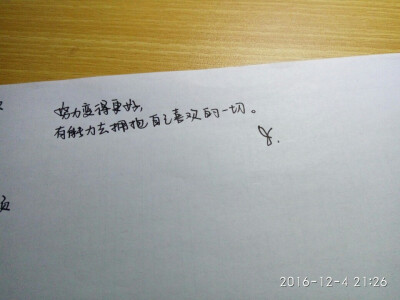 努力变得更好，
有能力去拥抱自己喜欢的一切。
2016-12-4 21:26